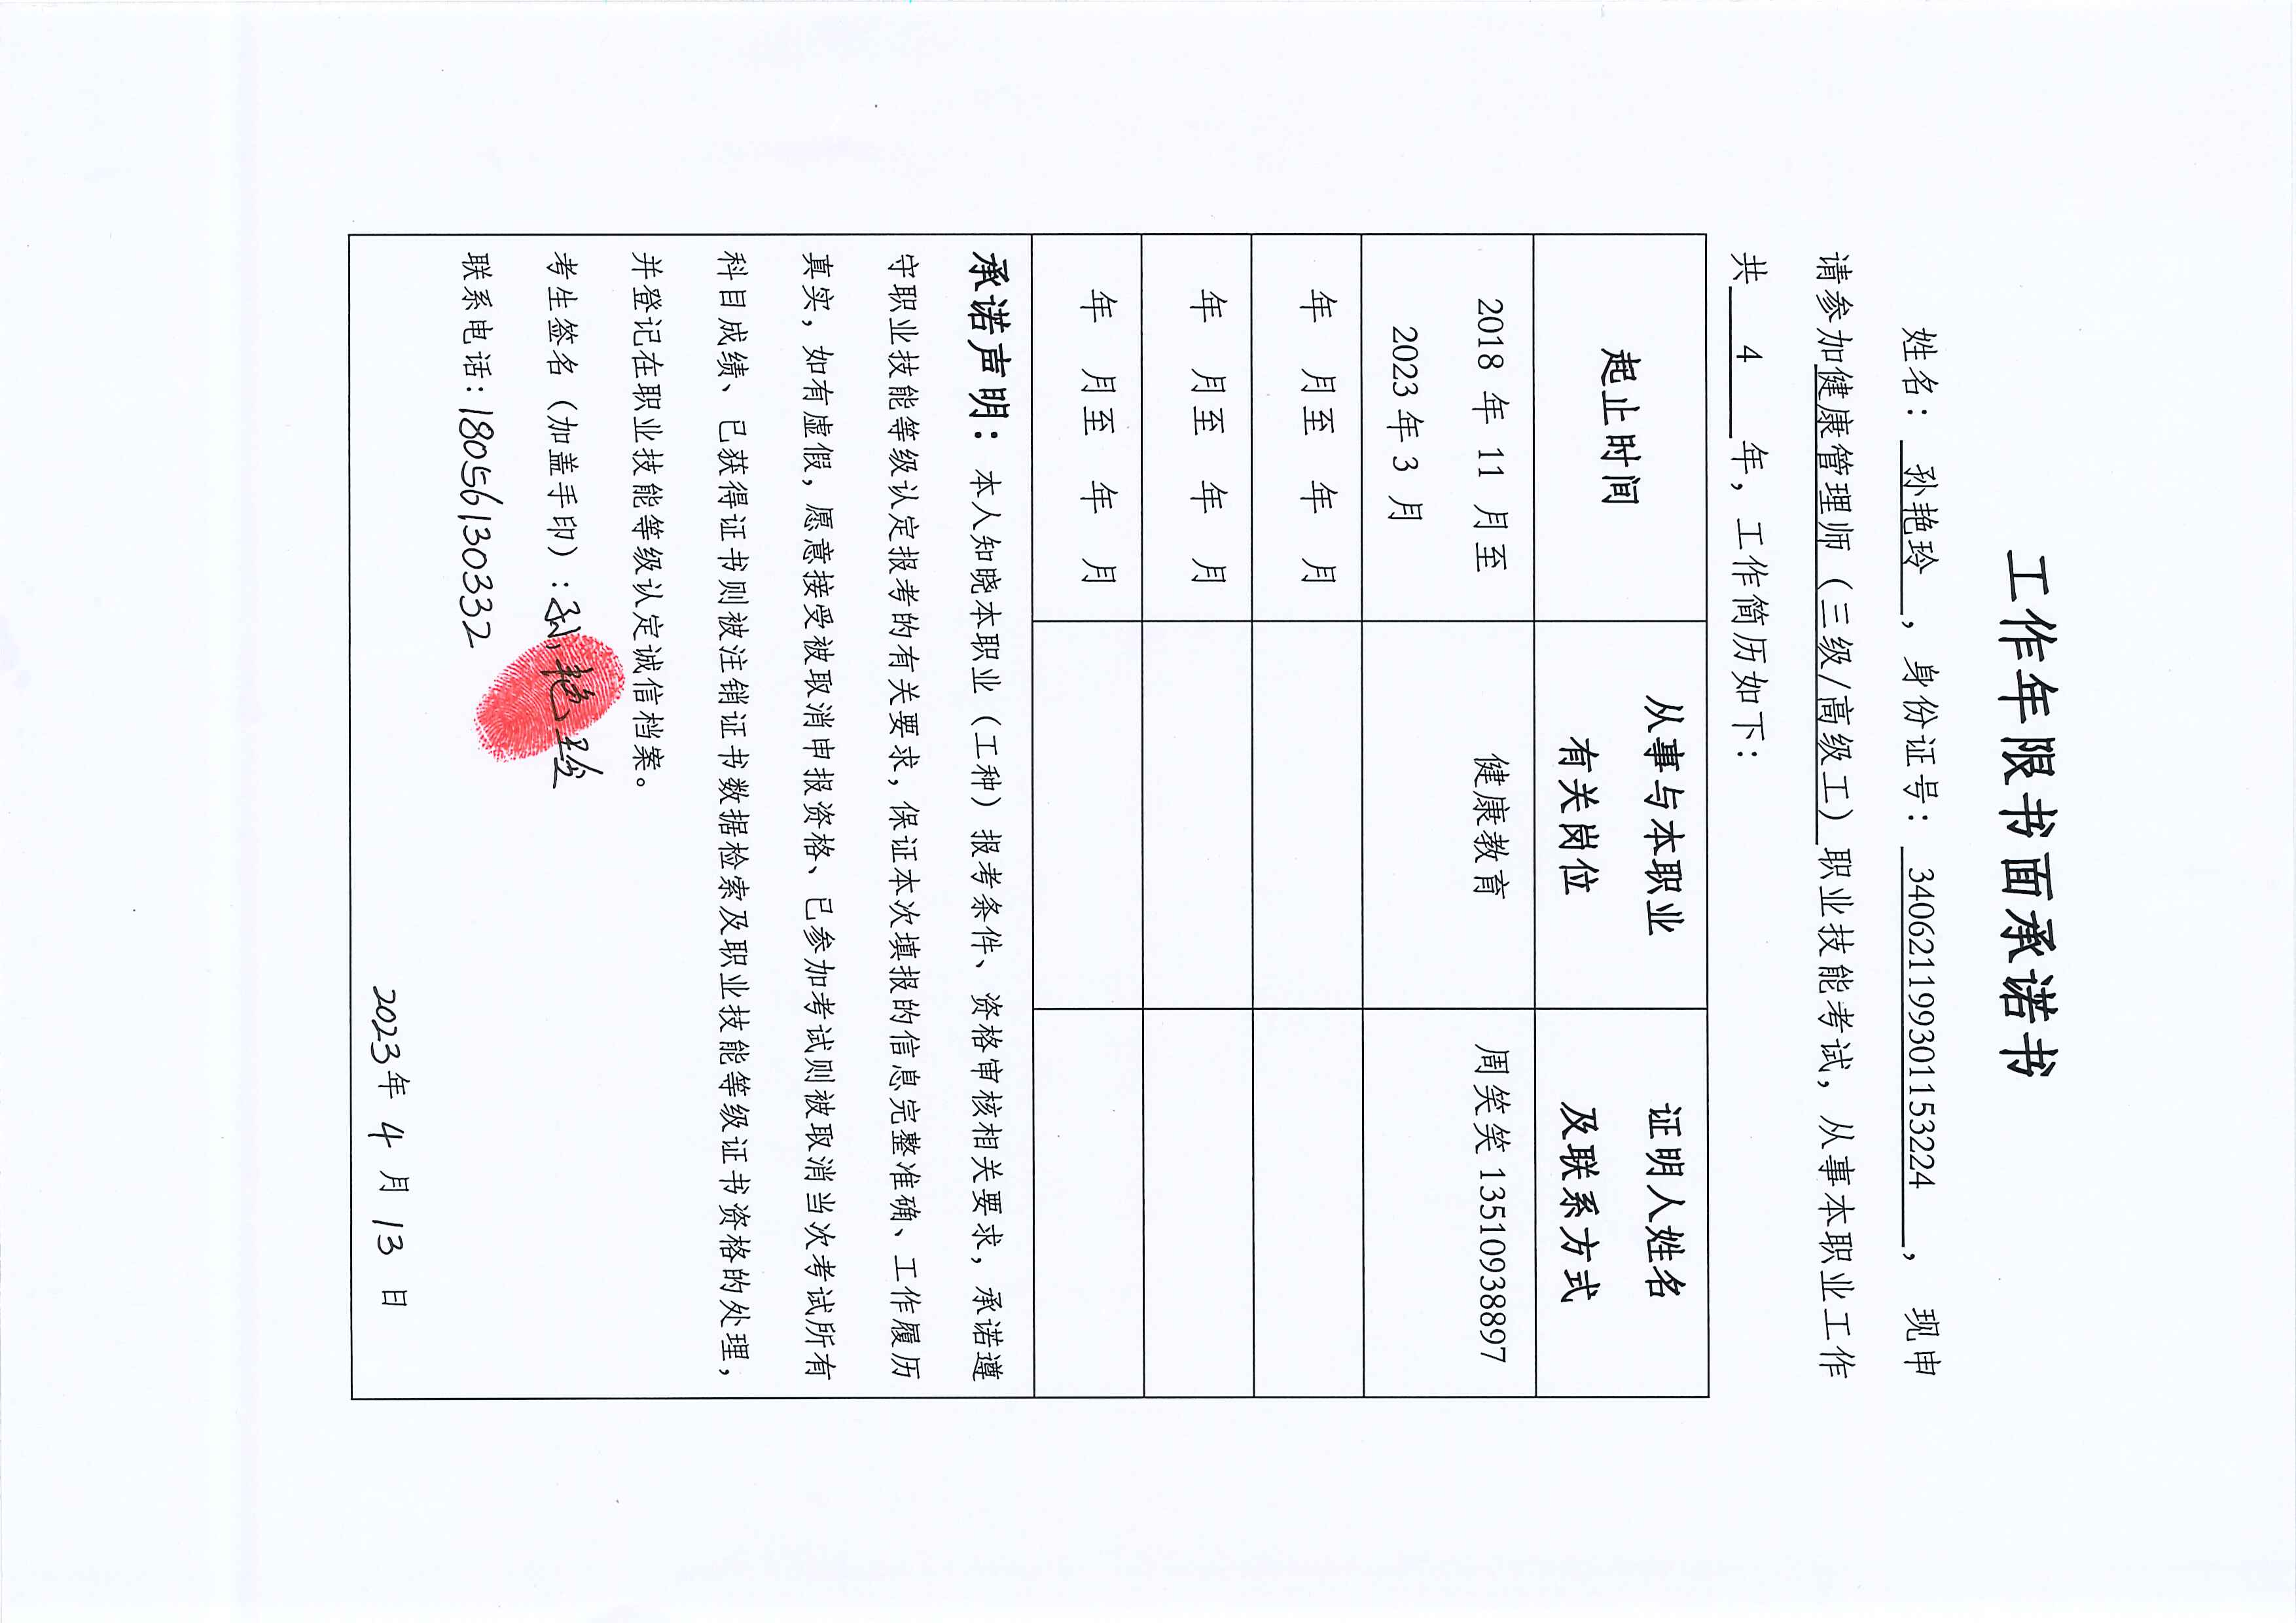 工作年限书面承诺书
姓名： 孙艳玲 ， 身份证号： 340621199301153224 ， 现申
请参加健康管理师（三级/高级工）职业技能考试，从事本职业工作
共 4 年，工作简历如下：
起止时间
从事与本职业
有关岗位
证明人姓名
及联系方式
2018 年 11 月至
2023 年 3 月
健康教育
周笑笑 13510938897
年 月至 年 月
年 月至 年 月
年 月至 年 月
承诺声明：本人知晓本职业（工种）报考条件、资格审核相关要求，承诺遵
守职业技能等级认定报考的有关要求，保证本次填报的信息完整准确、工作履历
真实，如有虚假，愿意接受被取消申报资格、已参加考试则被取消当次考试所有
科目成绩、已获得证书则被注销证书数据检索及职业技能等级证书资格的处理，
并登记在职业技能等级认定诚信档案。
考生签名（加盖手印）：孙艳玲
联系电话：18056130332
2023年 4 月 13 日